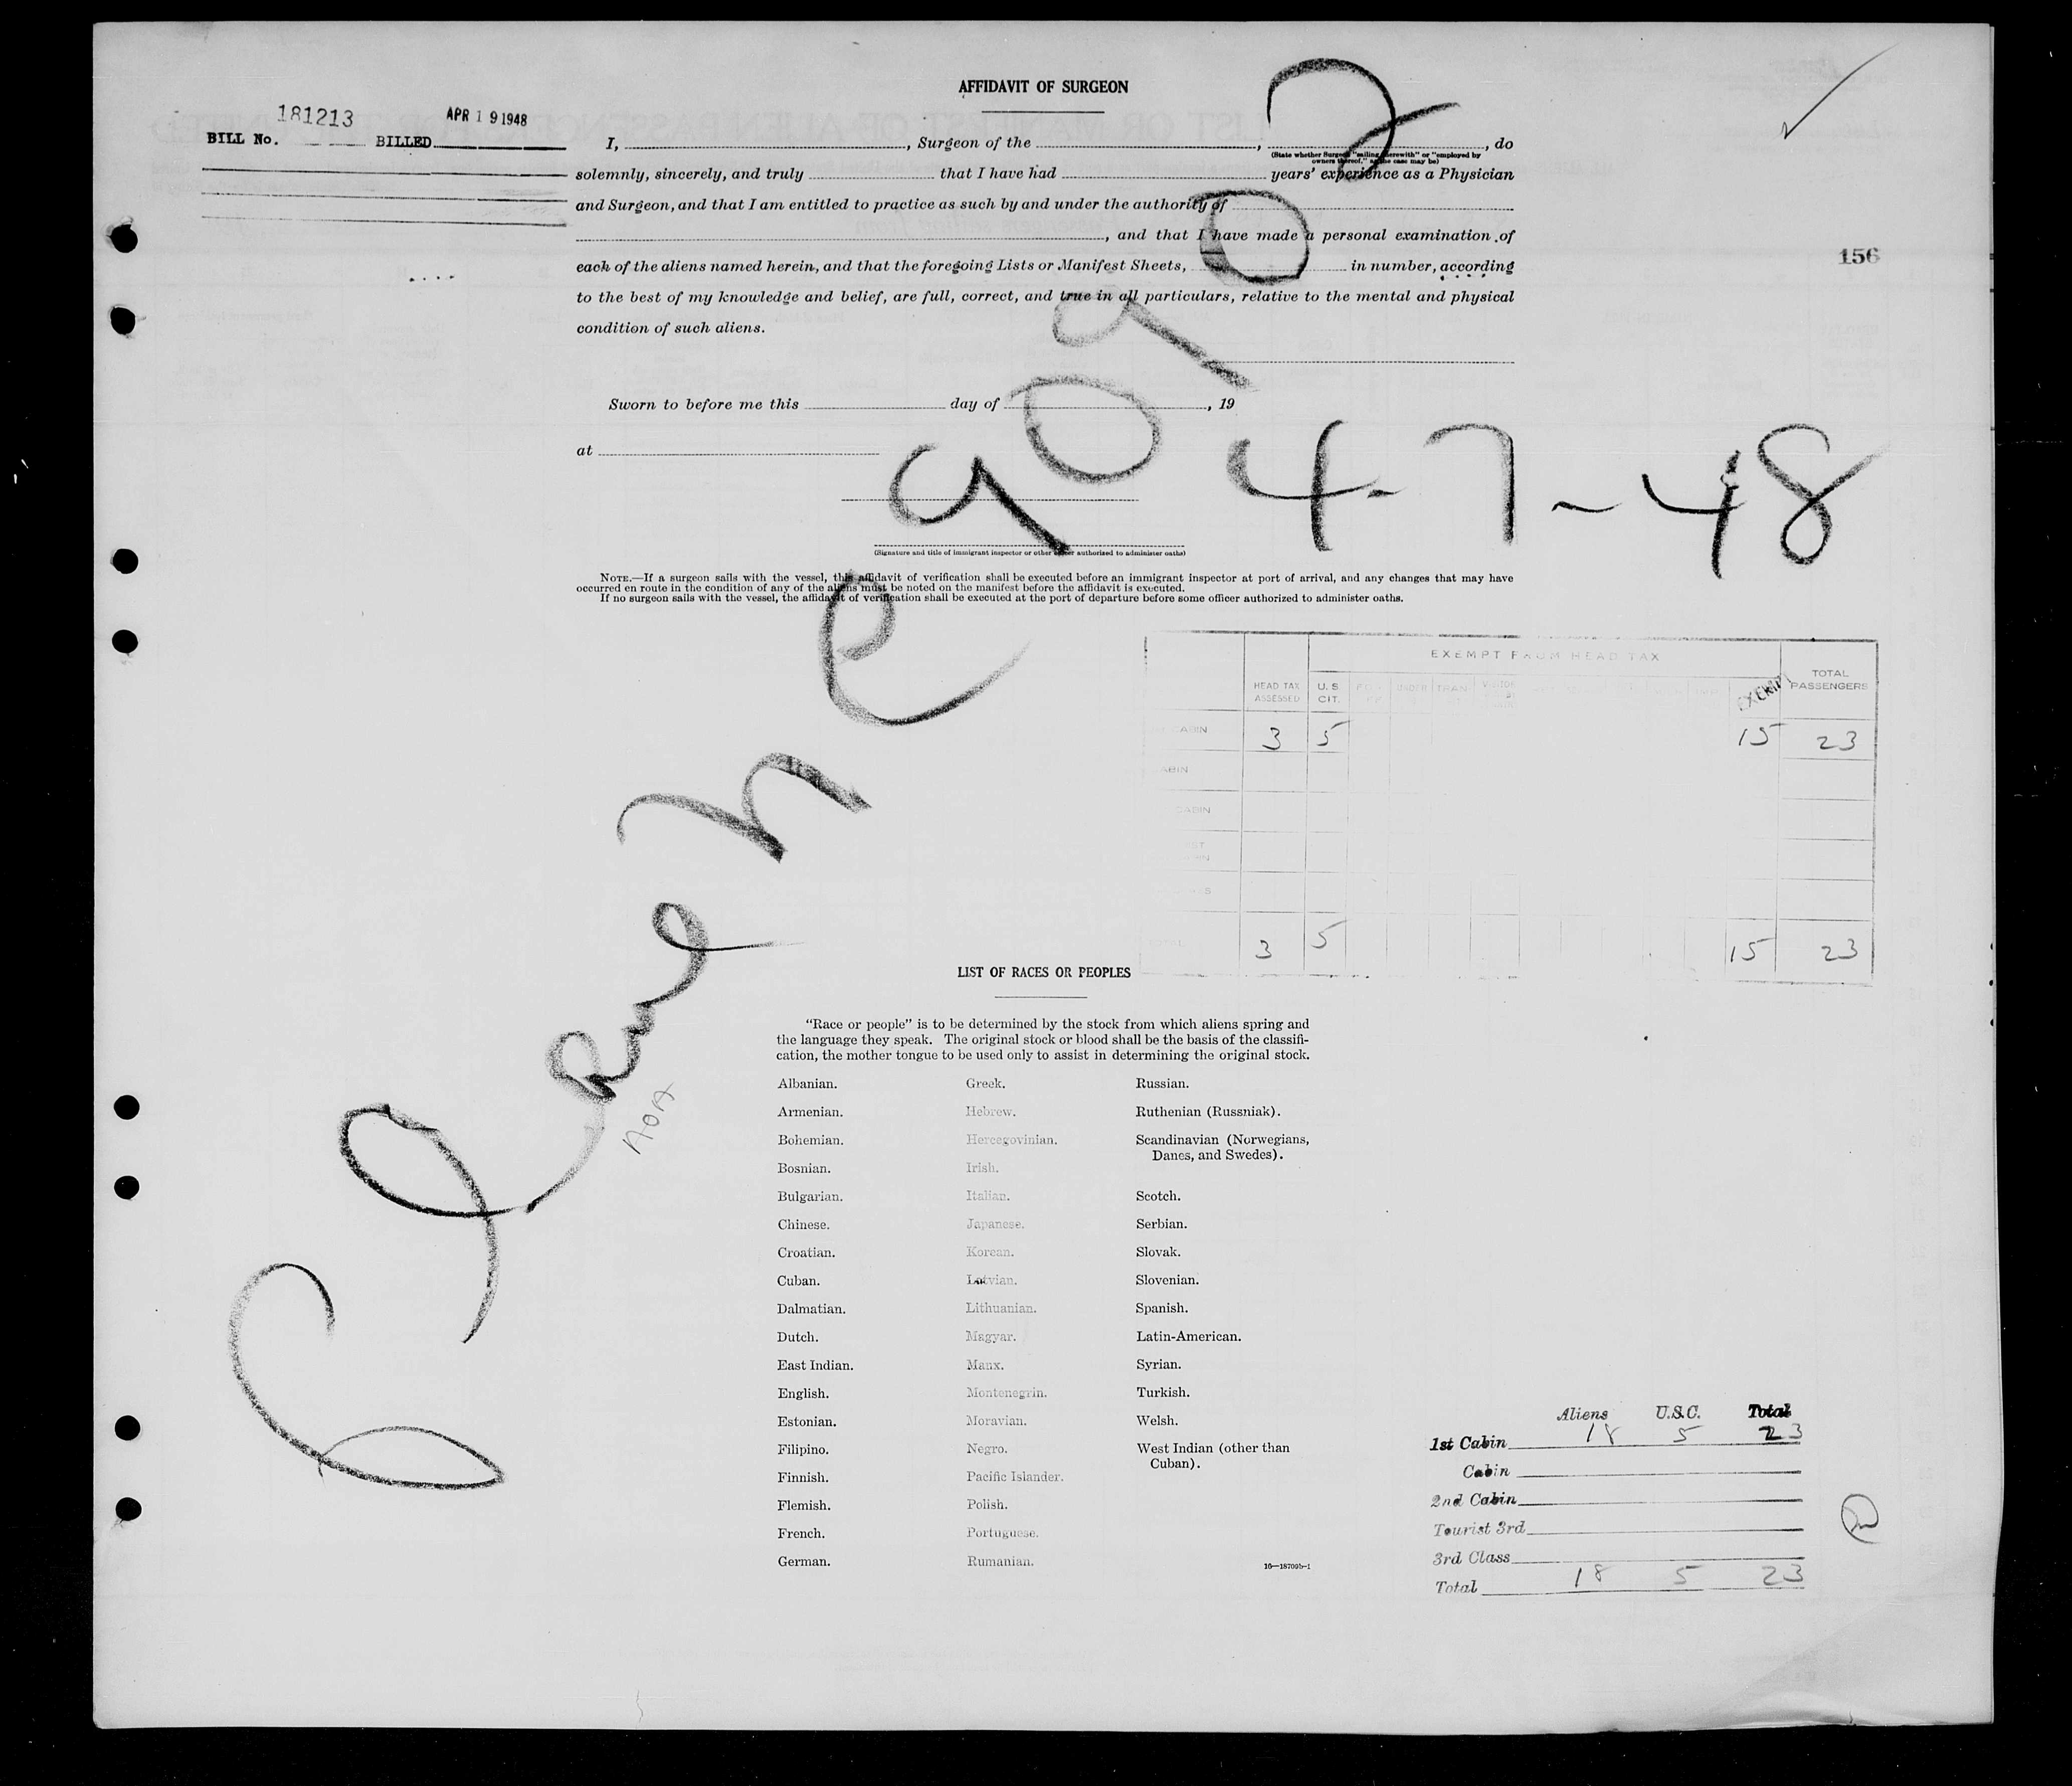 AFFIDAVIT OF SURGEON
181213 APR 19 1948
BILL No. BILLED
I, , Surgeon of the , , do
(State whether Surgeon "sailing therewith" or "employed by
owners thereof," as the case may be)
solemnly, sincerely, and truly that I have had years' experience as a Physician
and Surgeon, and that I am entitled to practice as such by and under the authority of
, and that I have made a personal examination of
each of the aliens named herein, and that the foregoing Lists or Manifest Sheets, in number, according
to the best of my knowledge and belief, are full, correct, and true in all particulars, relative to the mental and physical
condition of such aliens.
156
Sworn to before me this day of , 19
at
4-7-48
(Signature and title of immigrant inspector or other officer authorized to administer oaths)
NOTE.—If a surgeon sails with the vessel, this affidavit of verification shall be executed before an immigrant inspector at port of arrival, and any changes that may have
occurred en route in the condition of any of the aliens must be noted on the manifest before the affidavit is executed.
If no surgeon sails with the vessel, the affidavit of verification shall be executed at the port of departure before some officer authorized to administer oaths.
9090 2
EXEMPT FROM HEAD TAX
HEAD TAX ASSESSED U. S. CIT. UNDER TRAN EXEMPT TOTAL PASSENGERS
CABIN 3 5 15 23
CABIN
CABIN
TOTAL 3 5 15 23
LIST OF RACES OR PEOPLES
"Race or people" is to be determined by the stock from which aliens spring and
the language they speak. The original stock or blood shall be the basis of the classifi-
cation, the mother tongue to be used only to assist in determining the original stock.
AOA
Albanian. Greek. Russian.
Armenian. Hebrew. Ruthenian (Russniak).
Bohemian. Hercegovinian. Scandinavian (Norwegians,
Danes, and Swedes).
Bosnian. Irish.
Bulgarian. Italian. Scotch.
Chinese. Japanese. Serbian.
Croatian. Korean. Slovak.
Cuban. Latvian. Slovenian.
Dalmatian. Lithuanian. Spanish.
Dutch. Magyar. Latin-American.
East Indian. Manx. Syrian.
English. Montenegrin. Turkish.
Estonian. Moravian. Welsh.
Filipino. Negro. West Indian (other than
Cuban).
Finnish. Pacific Islander.
Flemish. Polish.
French. Portuguese.
German. Rumanian.
16—18709b-1
Aliens U.S.C. Total
1st Cabin 18 5 23
Cabin
2nd Cabin
Tourist 3rd
3rd Class
Total 18 5 23